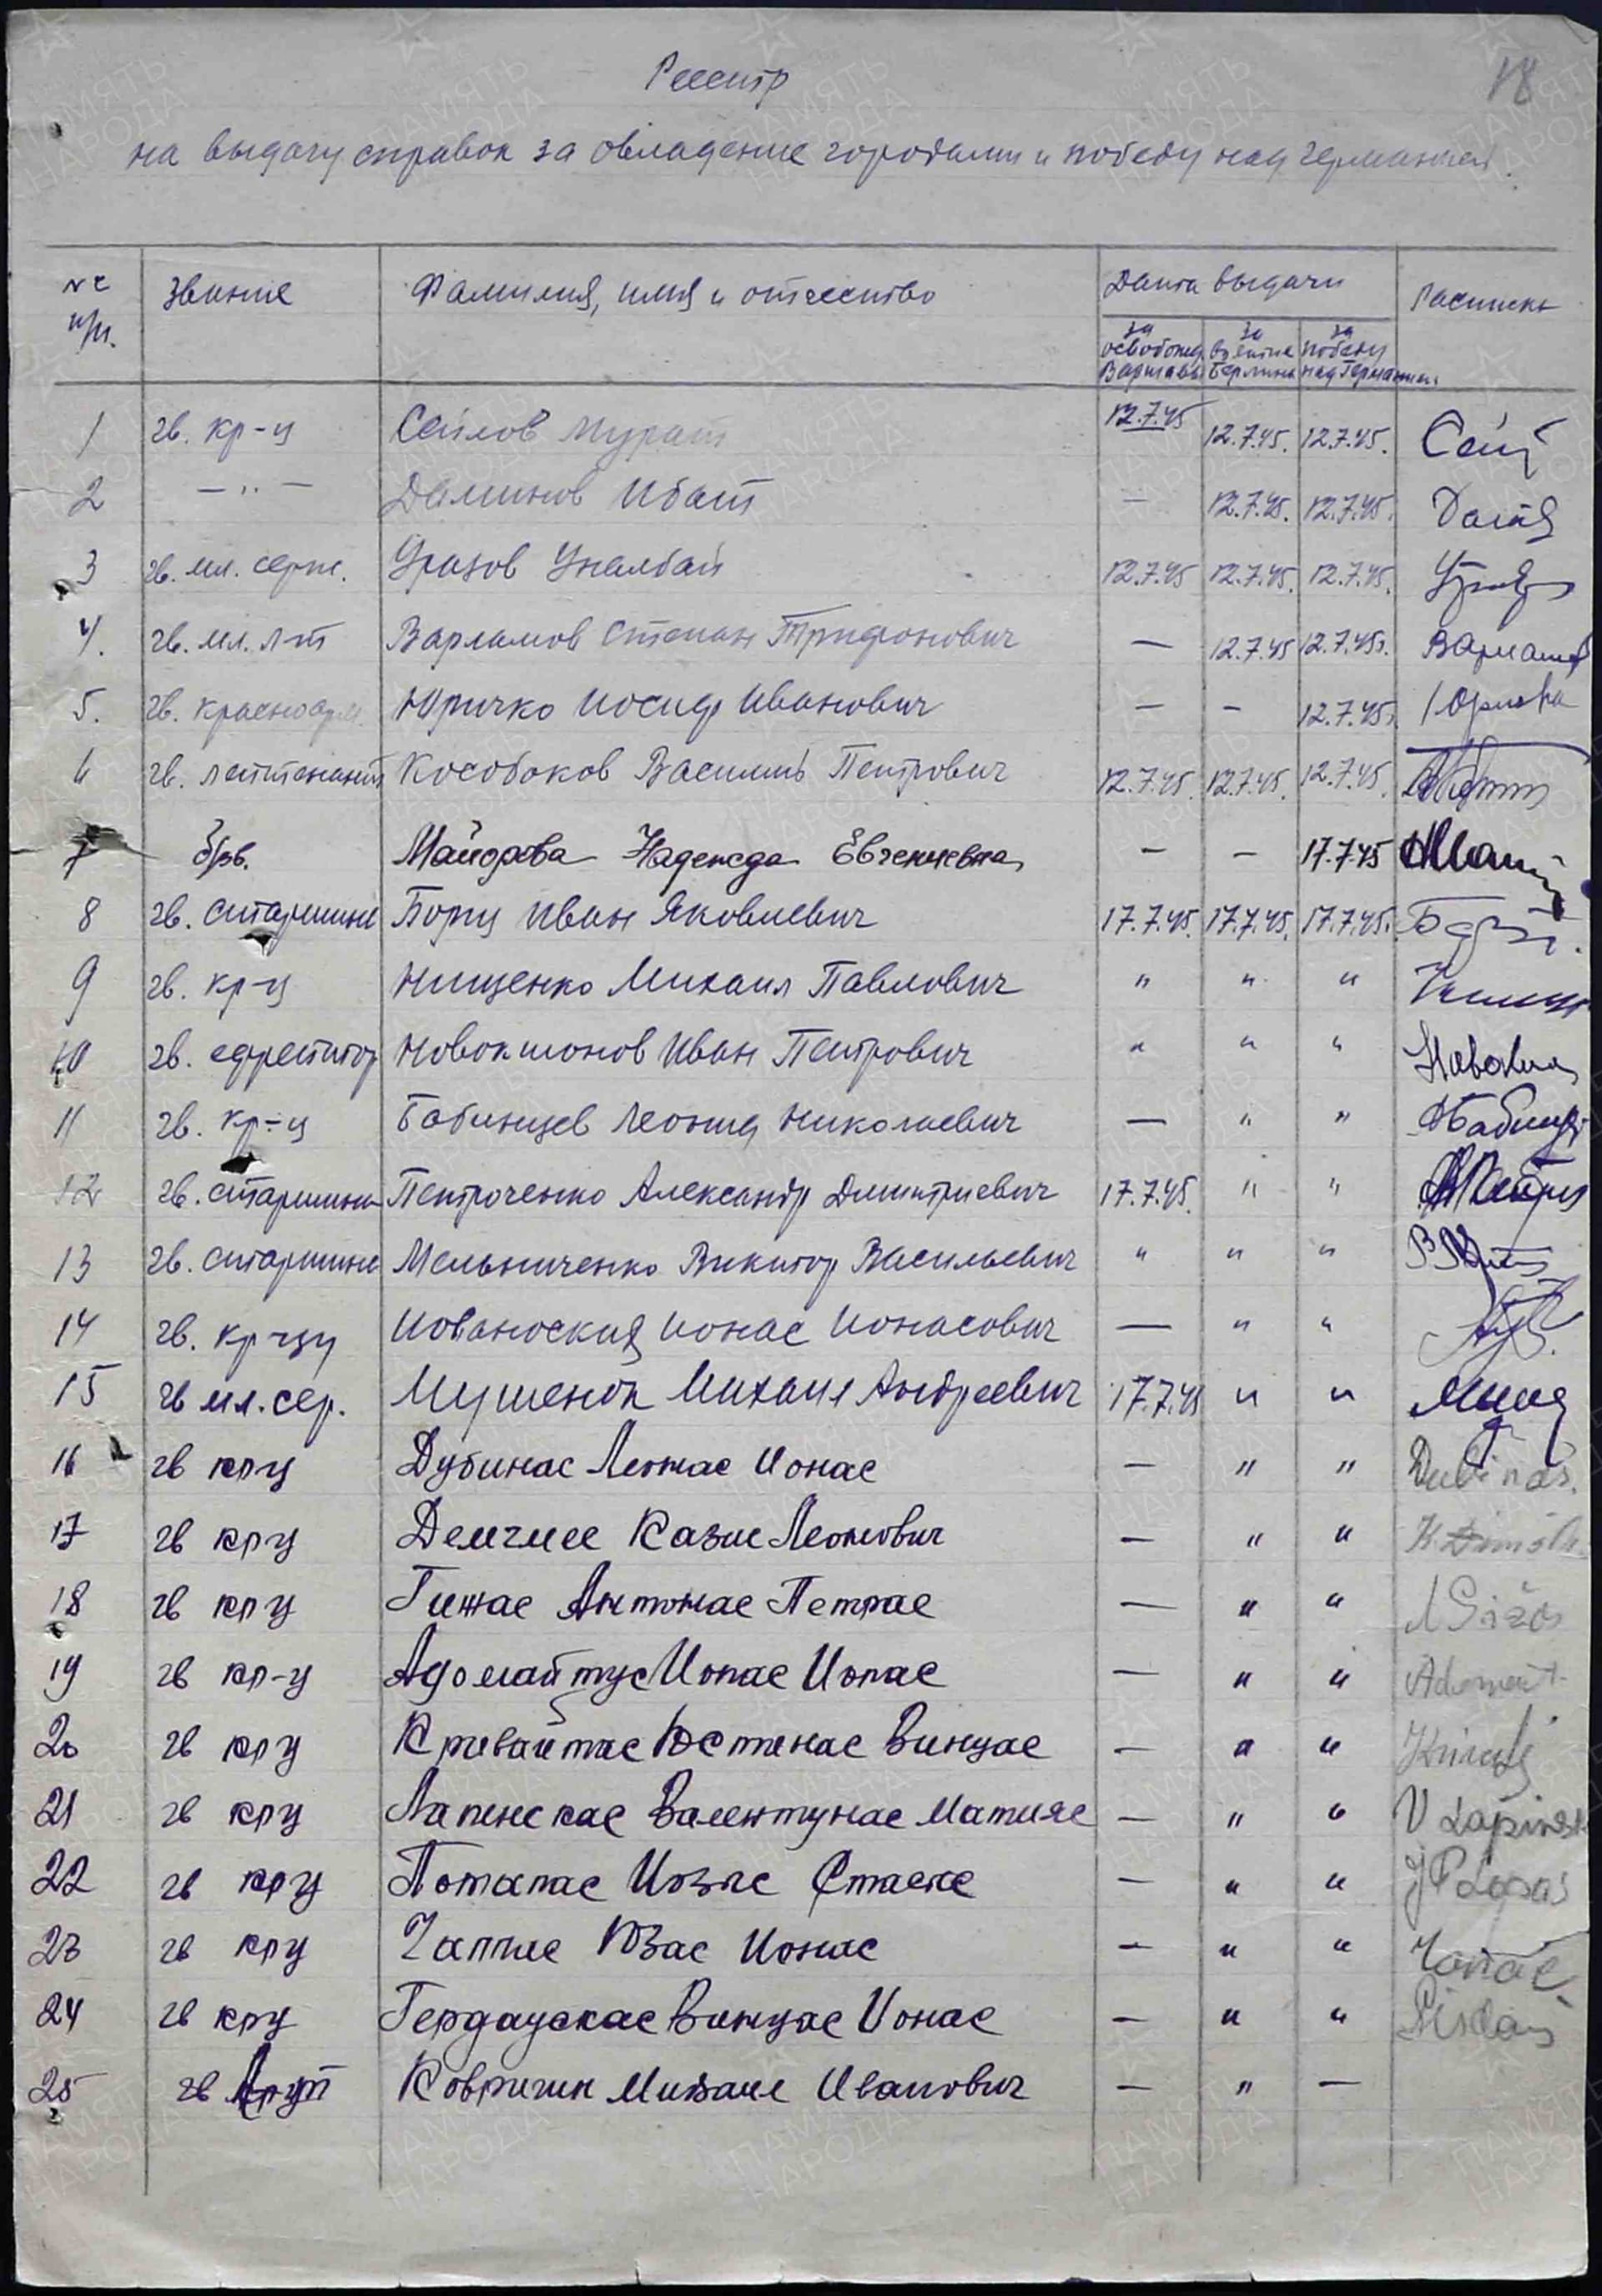 18
Реестр
на выдачу справок за овладение городами и победу над Германией.
№№ п/п. Звание Фамилия, имя и отчество Дата выдачи Расписка
за освобожд. Варшавы за взятие Берлина за победу над Германией
1 гв. кр-ц Саилов Мурат 12.7.45 12.7.45. 12.7.45.
2 —"— Даминов Ибат — 12.7.45. 12.7.45.
3 гв. мл. серж. Уразов Уналбай 12.7.45 12.7.45. 12.7.45.
4. гв. мл. л-т Варламов Степан Трифонович — 12.7.45 12.7.45г. Варламов
5. гв. красноарм. Юричко Иосиф Иванович — — 12.7.45г.
6 гв. лейтенант Кособоков Василий Петрович 12.7.45. 12.7.45. 12.7.45.
7 Майорова Надежда Евгениевна — — 17.7.45
8 гв. старшине Борщ Иван Яковлевич 17.7.45. 17.7.45. 17.7.45.
9 гв. кр-ц Нищенко Михаил Павлович " " "
10 гв. ефрейтор Новокшонов Иван Петрович " " "
11 гв. кр-ц Бабинцев Леонид Николаевич — " "
12 гв. старшина Петроченко Александр Дмитриевич 17.7.45. " "
13 гв. старшине Мельниченко Виктор Васильевич " " "
14 гв. кр-цу Иованоския Ионас Ионасович — " "
15 гв мл. сер. Мушенок Михаил Андреевич 17.7.45 " "
16 гв крц Дубинас Леонас Ионас — " " Dubinas.
17 гв крц Казис Леонович — " "
18 гв крц Гижас Антонас Петрас — " "
19 гв кр-ц Адомайтус Ионас Ионас — " "
20 гв крц Кривайтас Юстенас Винцас — " "
21 гв крц Лапенскас Валентунас Матияс — " " V Lapinsk
22 гв крц Потапас Иозас Стасис — " "
23 гв крц Юзас Ионас — " "
24 гв крц Гердаускас Винцас Ионас — " "
25 гв Ковригин Михаил Иванович — " —